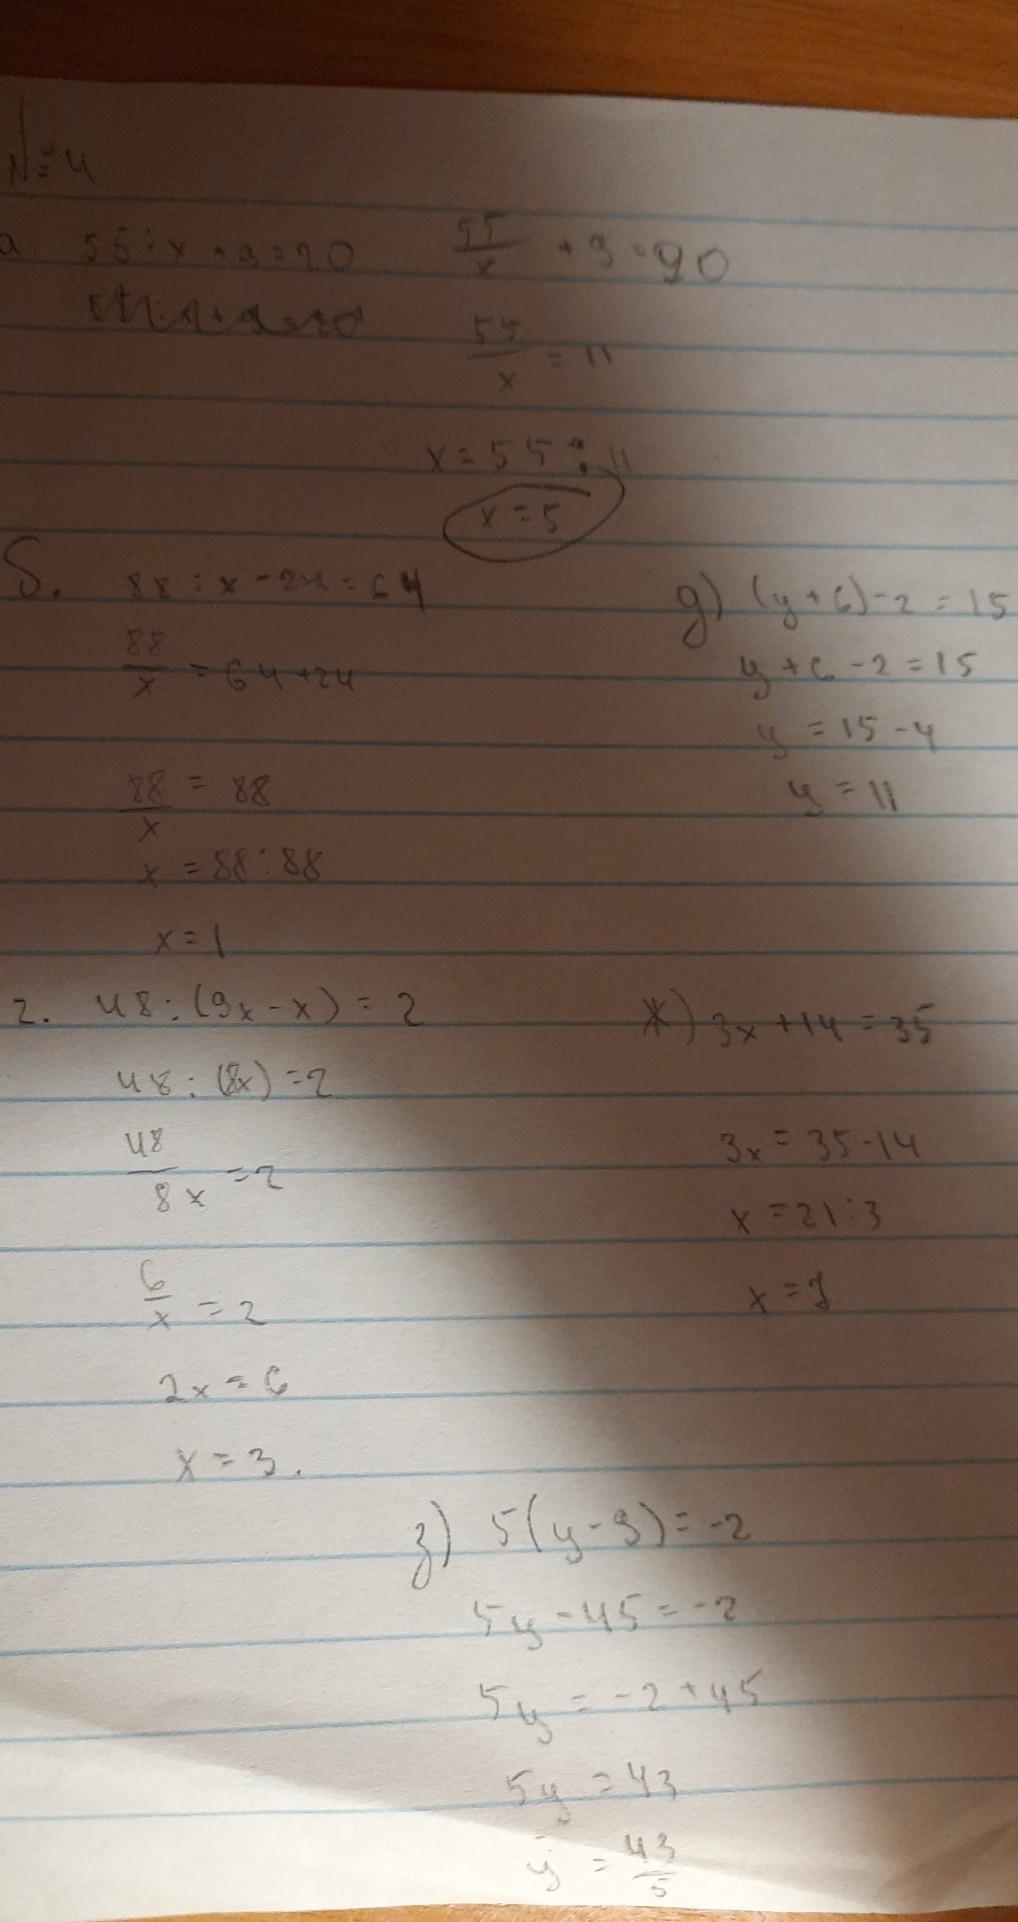 № 4
а. 55 : x + 9 = 20
55/x + 9 = 90
55/x = 11
x = 55 : 11
x = 5
б. 88 : x - 24 = 64
88/x = 64 + 24
88/x = 88
x = 88 : 88
x = 1
г. 48 : (9x - x) = 2
48 : (8x) = 2
48/8x = 2
6/x = 2
2x = 6
x = 3.
д) (y + 6) - 2 = 15
y + 6 - 2 = 15
y = 15 - 4
y = 11
ж) 3x + 14 = 35
3x = 35 - 14
x = 21 : 3
x = 7
з) 5(y - 9) = -2
5y - 45 = -2
5y = -2 + 45
5y = 43
y = 43/5